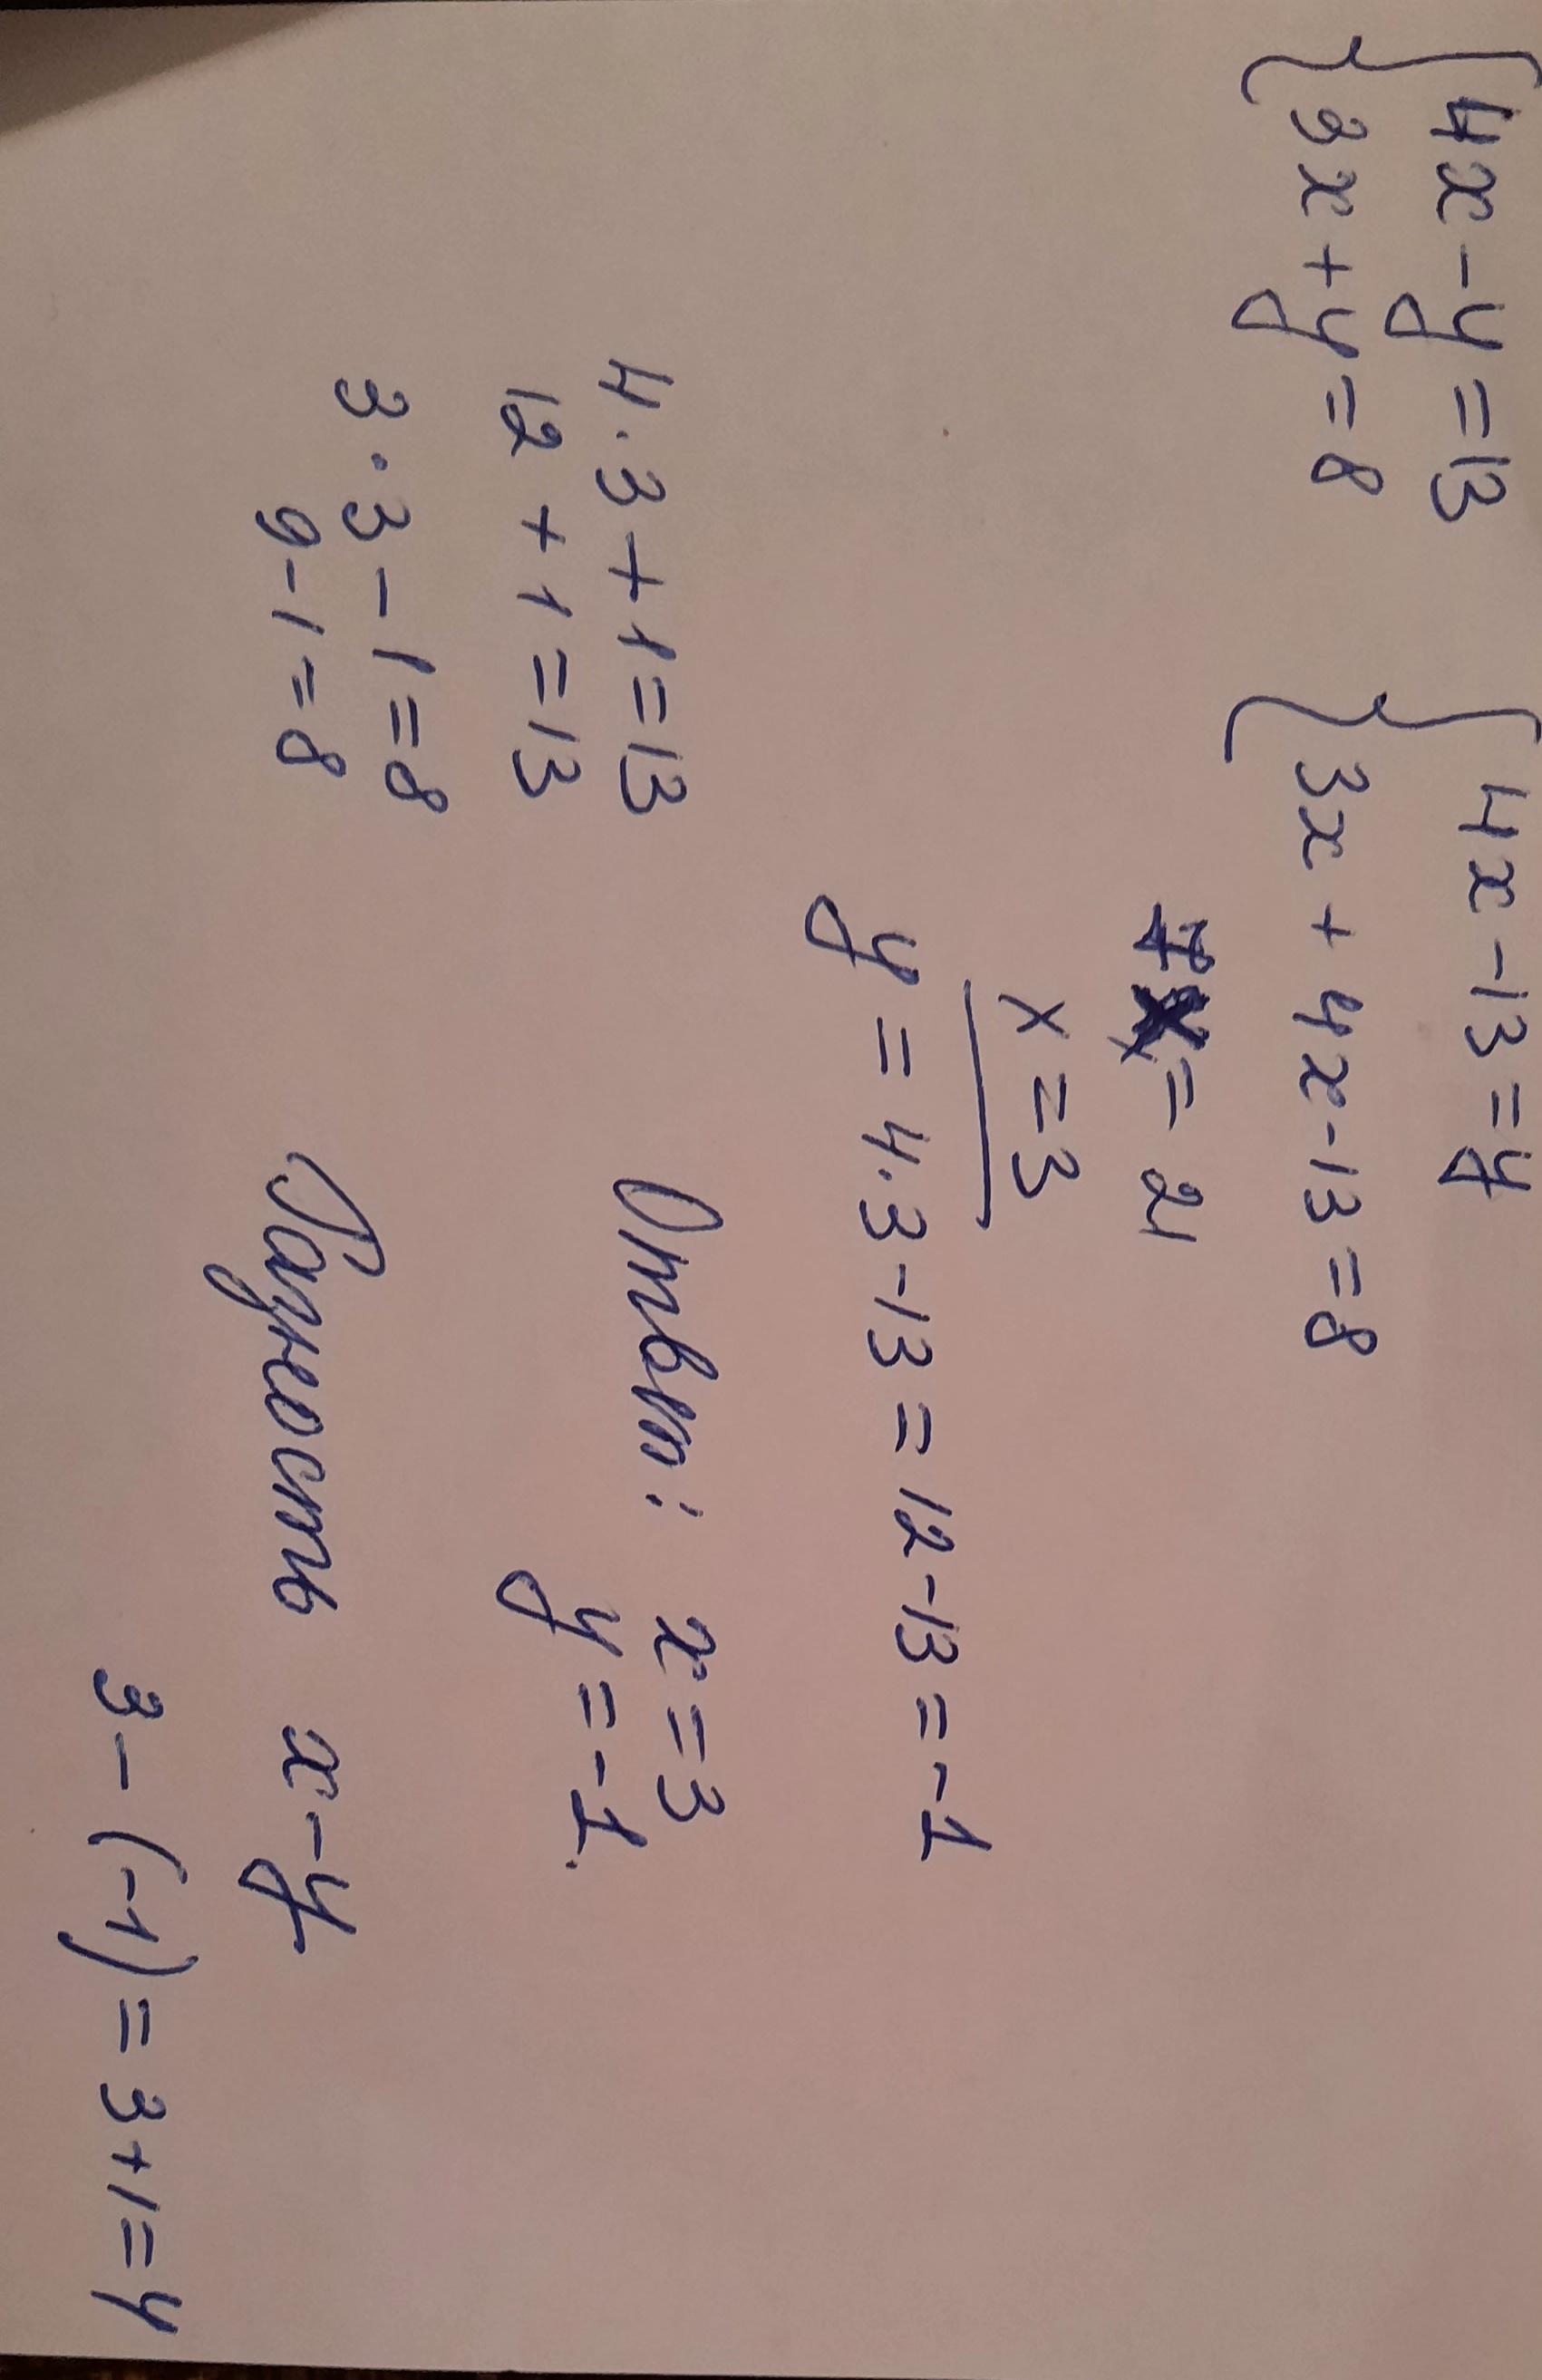 4x - y = 13
3x + y = 8
4x - 13 = y
3x + 4x - 13 = 8
7x = 21
x = 3
y = 4·3 - 13 = 12 - 13 = -1
4·3 + 1 = 13
12 + 1 = 13
3·3 - 1 = 8
9 - 1 = 8
Ответ: x = 3
y = -1.
Разность x - y
3 - (-1) = 3 + 1 = 4